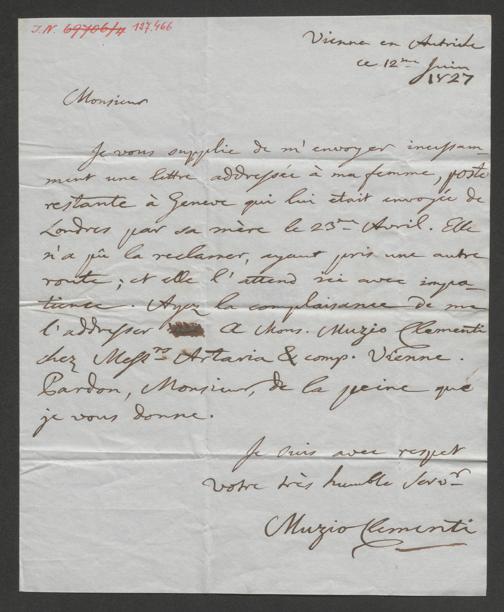 I.N. 69706/4 127.466
Vienne en Autriche
ce 12me Juin
1827
Monsieur
Je vous supplie de m'envoyer incessam
ment une lettre addressée à ma femme, poste
restante à Geneve qui lui étoit envoyée de
Londres par sa mère le 23me Avril. Elle
n'a pû la reclamer, ayant pris une autre
route; et elle l'attend ici avec impa
tience. Ayez la complaisance de me
l'addresser A Mons. Muzio Clementi
chez Messrs Artaria & comp. Vienne.
Pardon, Monsieur, de la peine que
je vous donne.
Je suis avec respect
votre très humble Servr
Muzio Clementi